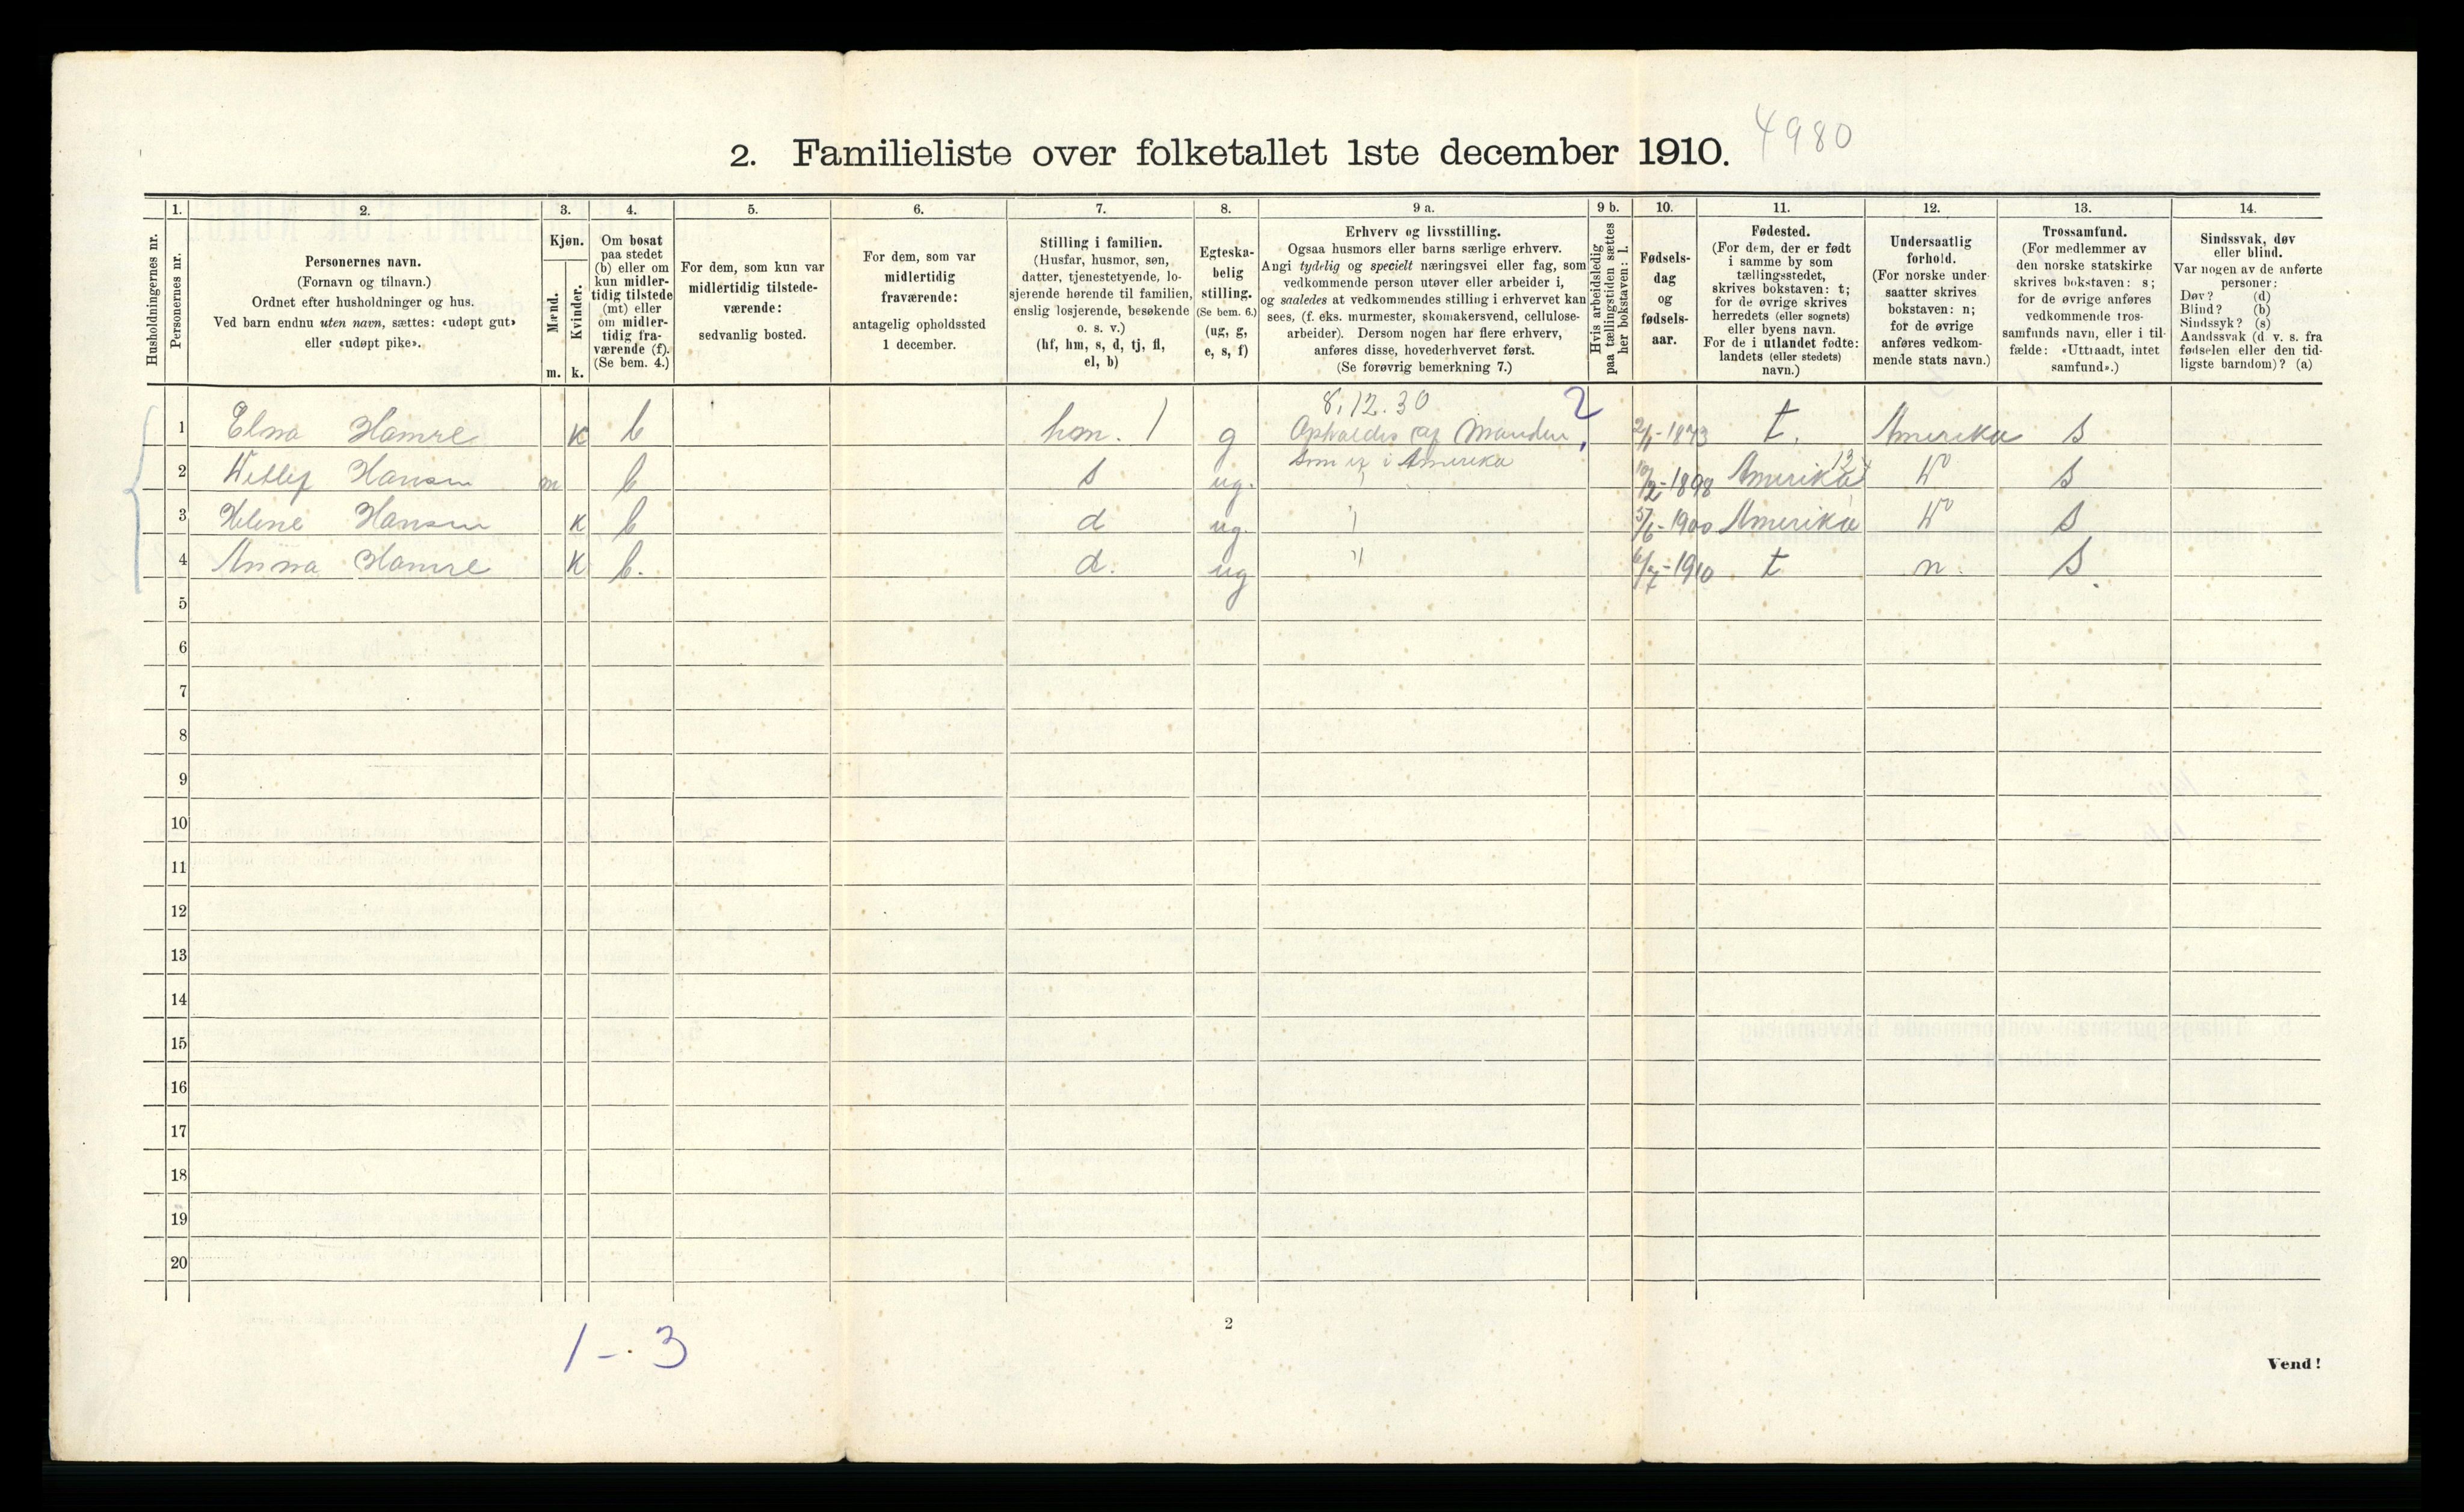 4980
2. Familieliste over folketallet 1ste december 1910.
1. 2. 3. 4. 5. 6. 7. 8. 9 a. 9 b. 10. 11. 12. 13. 14.
Husholdningernes nr.
Personernes nr.
Personernes navn.
(Fornavn og tilnavn.)
Ordnet efter husholdninger og hus.
Ved barn endnu uten navn, sættes: «udøpt gut»
eller «udøpt pike».
Kjøn.
Mænd.
Kvinder.
m. k.
Om bosat
paa stedet
(b) eller om
kun midler-
tidig tilstede
(mt) eller
om midler-
tidig fra-
værende (f).
(Se bem. 4.)
For dem, som kun var
midlertidig tilstede-
værende:
sedvanlig bosted.
For dem, som var
midlertidig
fraværende:
antagelig opholdssted
1 december.
Stilling i familien.
(Husfar, husmor, søn,
datter, tjenestetyende, lo-
sjerende hørende til familien,
enslig losjerende, besøkende
o. s. v.)
(hf, hm, s, d, tj, fl,
el, b)
Egteska-
belig
stilling.
(Se bem. 6.)
(ug, g,
e, s, f)
Erhverv og livsstilling.
Ogsaa husmors eller barns særlige erhverv.
Angi tydelig og specielt næringsvei eller fag, som
vedkommende person utøver eller arbeider i,
og saaledes at vedkommendes stilling i erhvervet kan
sees, (f. eks. murmester, skomakersvend, cellulose-
arbeider). Dersom nogen har flere erhverv,
anføres disse, hovederhvervet først.
(Se forøvrig bemerkning 7.)
Hvis arbeidsledig
paa tællingstiden sættes
her bokstaven: l.
Fødsels-
dag
og
fødsels-
aar.
Fødested.
(For dem, der er født
i samme by som
tællingsstedet,
skrives bokstaven: t;
for de øvrige skrives
herredets (eller sognets)
eller byens navn.
For de i utlandet fødte:
landets (eller stedets)
navn.)
Undersaatlig
forhold.
(For norske under-
saatter skrives
bokstaven: n;
for de øvrige
anføres vedkom-
mende stats navn.)
Trossamfund.
(For medlemmer av
den norske statskirke
skrives bokstaven: s;
for de øvrige anføres
vedkommende tros-
samfunds navn, eller i til-
fælde: «Uttraadt, intet
samfund».)
Sindssvak, døv
eller blind.
Var nogen av de anførte
personer:
Døv? (d)
Blind? (b)
Sindssyk? (s)
Aandssvak (d. v. s. fra
fødselen eller den tid-
ligste barndom)? (a)
8.12.30 2
1 Elna Hamre K b hm. 1 g Opholdes af Manden 1873 t. Amerika s
som er i Amerika
2 Hansen m b s ug. 10/2-1898 Amerika s
3 Helene Hansen K b d ug. 5/6-1900 Amerika s
4 Anna Hamre K b. d. ug " 6/7-1910 t n. s.
5
6
7
8
9
10
11
12
13
14
15
16
17
18
19
20
2
1 - 3
Vend!